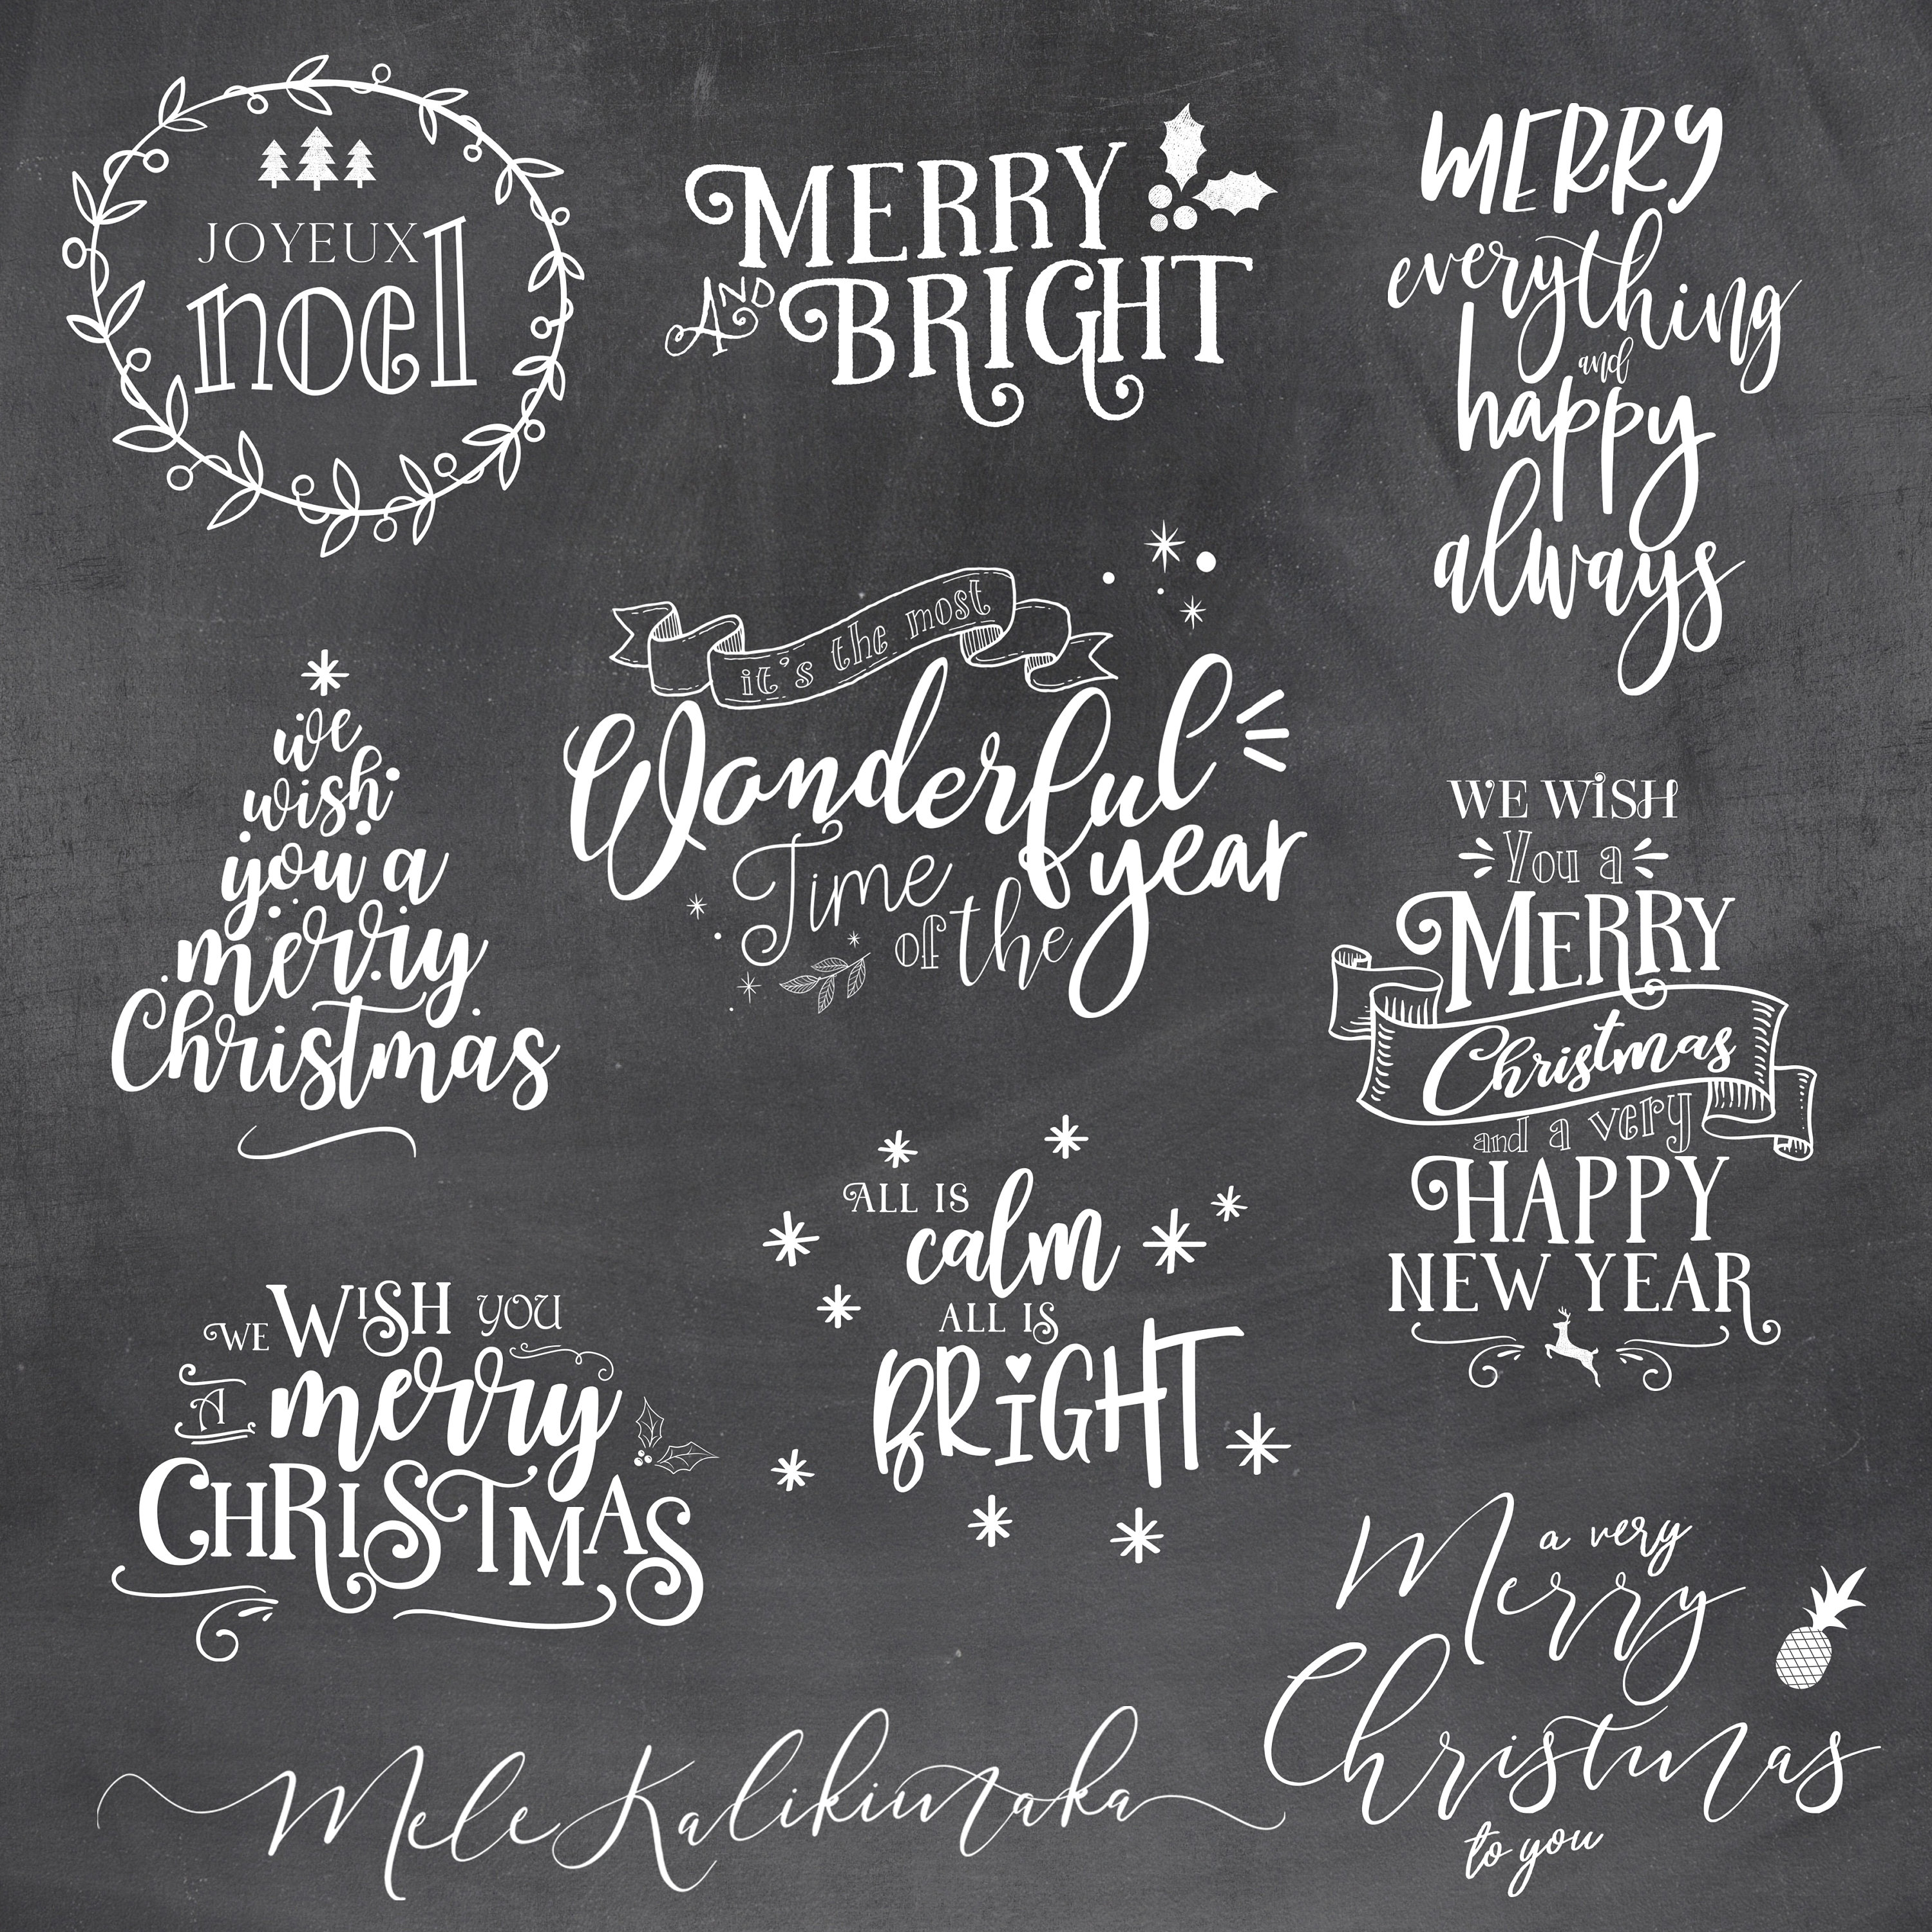 JOYEUX
noel
MERRY
AND BRIGHT
MERRY
everything
and
happy
always
it's the most
Wonderful
Time of the year
we
wish
you a
merry
Christmas
WE WISH
You a
MERRY
Christmas
and a very
HAPPY
NEW YEAR
ALL IS
calm
ALL IS
BRiGHT
WE WISH YOU
A merry
CHRISTMAS
a very
Merry
Christmas
to you
Mele Kalikimaka